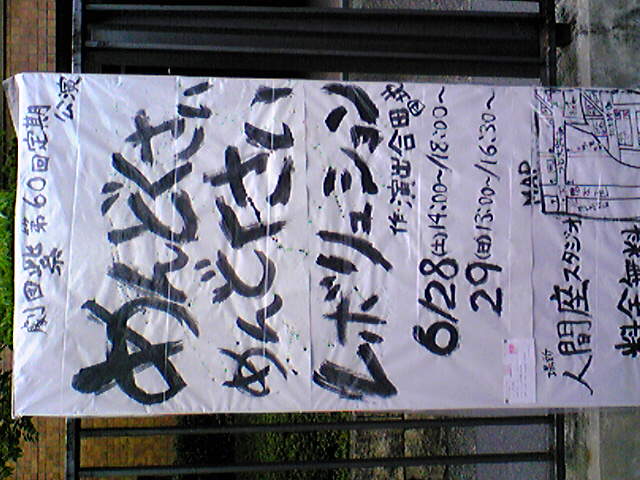 第60回定期
公演
めんどくさい
めんどくさい
レボリューション
作・演出 合田
6/28(土)14:00〜/18:00〜
29(日)13:00〜/16:30〜
MAP
場所
人間座スタジオ
料金無料